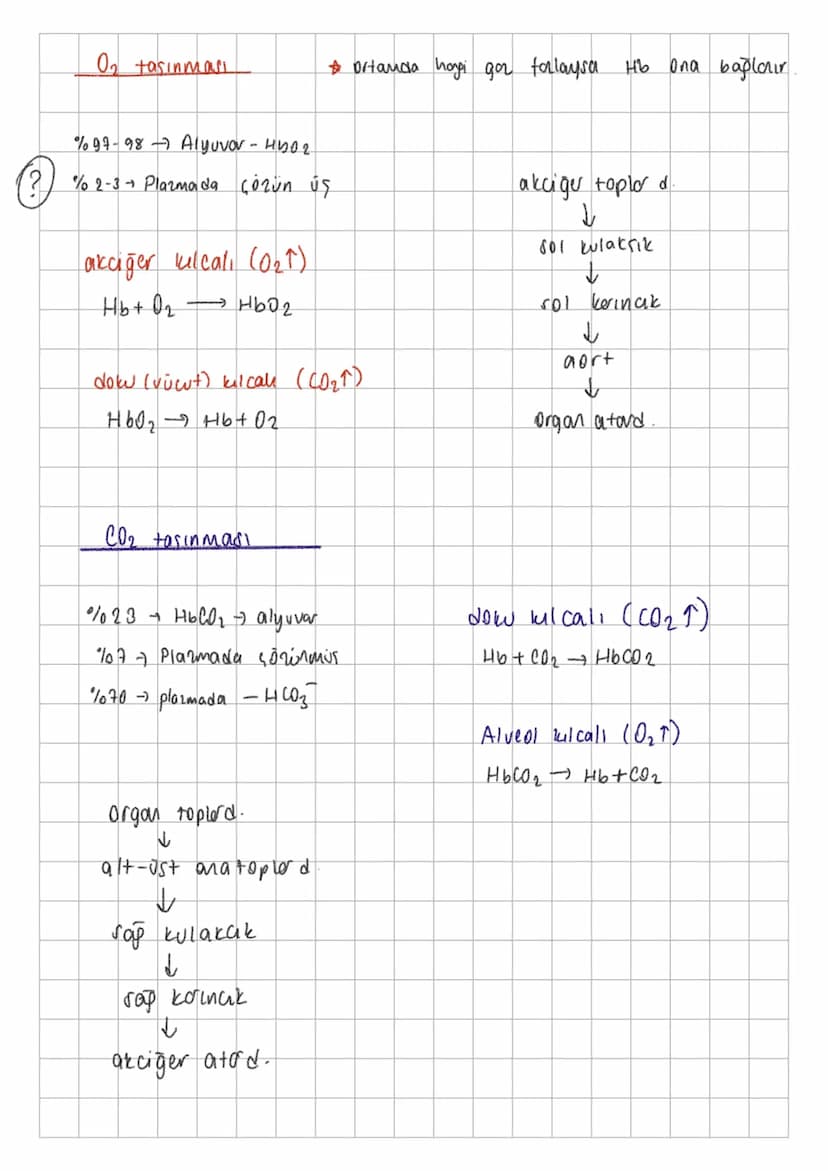 O2 taşınması
* ortamda hangi gaz fazlaysa Hb ona bağlanır.
%97-98 → Alyuvar - HbO2
? %2-3 → Plazmada çözünmüş
akciğer kılcalı (O2↑)
Hb + O2 → HbO2
doku (vücut) kılcalı (CO2↑)
HbO2 → Hb + O2
akciğer toplar d.
↓
sol kulakçık
↓
sol karıncık
↓
aort
↓
Organ atard.
CO2 taşınması
%23 → HbCO2 → alyuvar
%7 → Plazmada çözünmüş
%70 → plazmada - HCO3⁻
doku kılcalı (CO2↑)
Hb + CO2 → HbCO2
Alveol kılcalı (O2↑)
HbCO2 → Hb + CO2
Organ toplard.
↓
alt-üst ana toplar d
↓
sağ kulakcık
↓
sağ karıncık
↓
akciğer atar d.